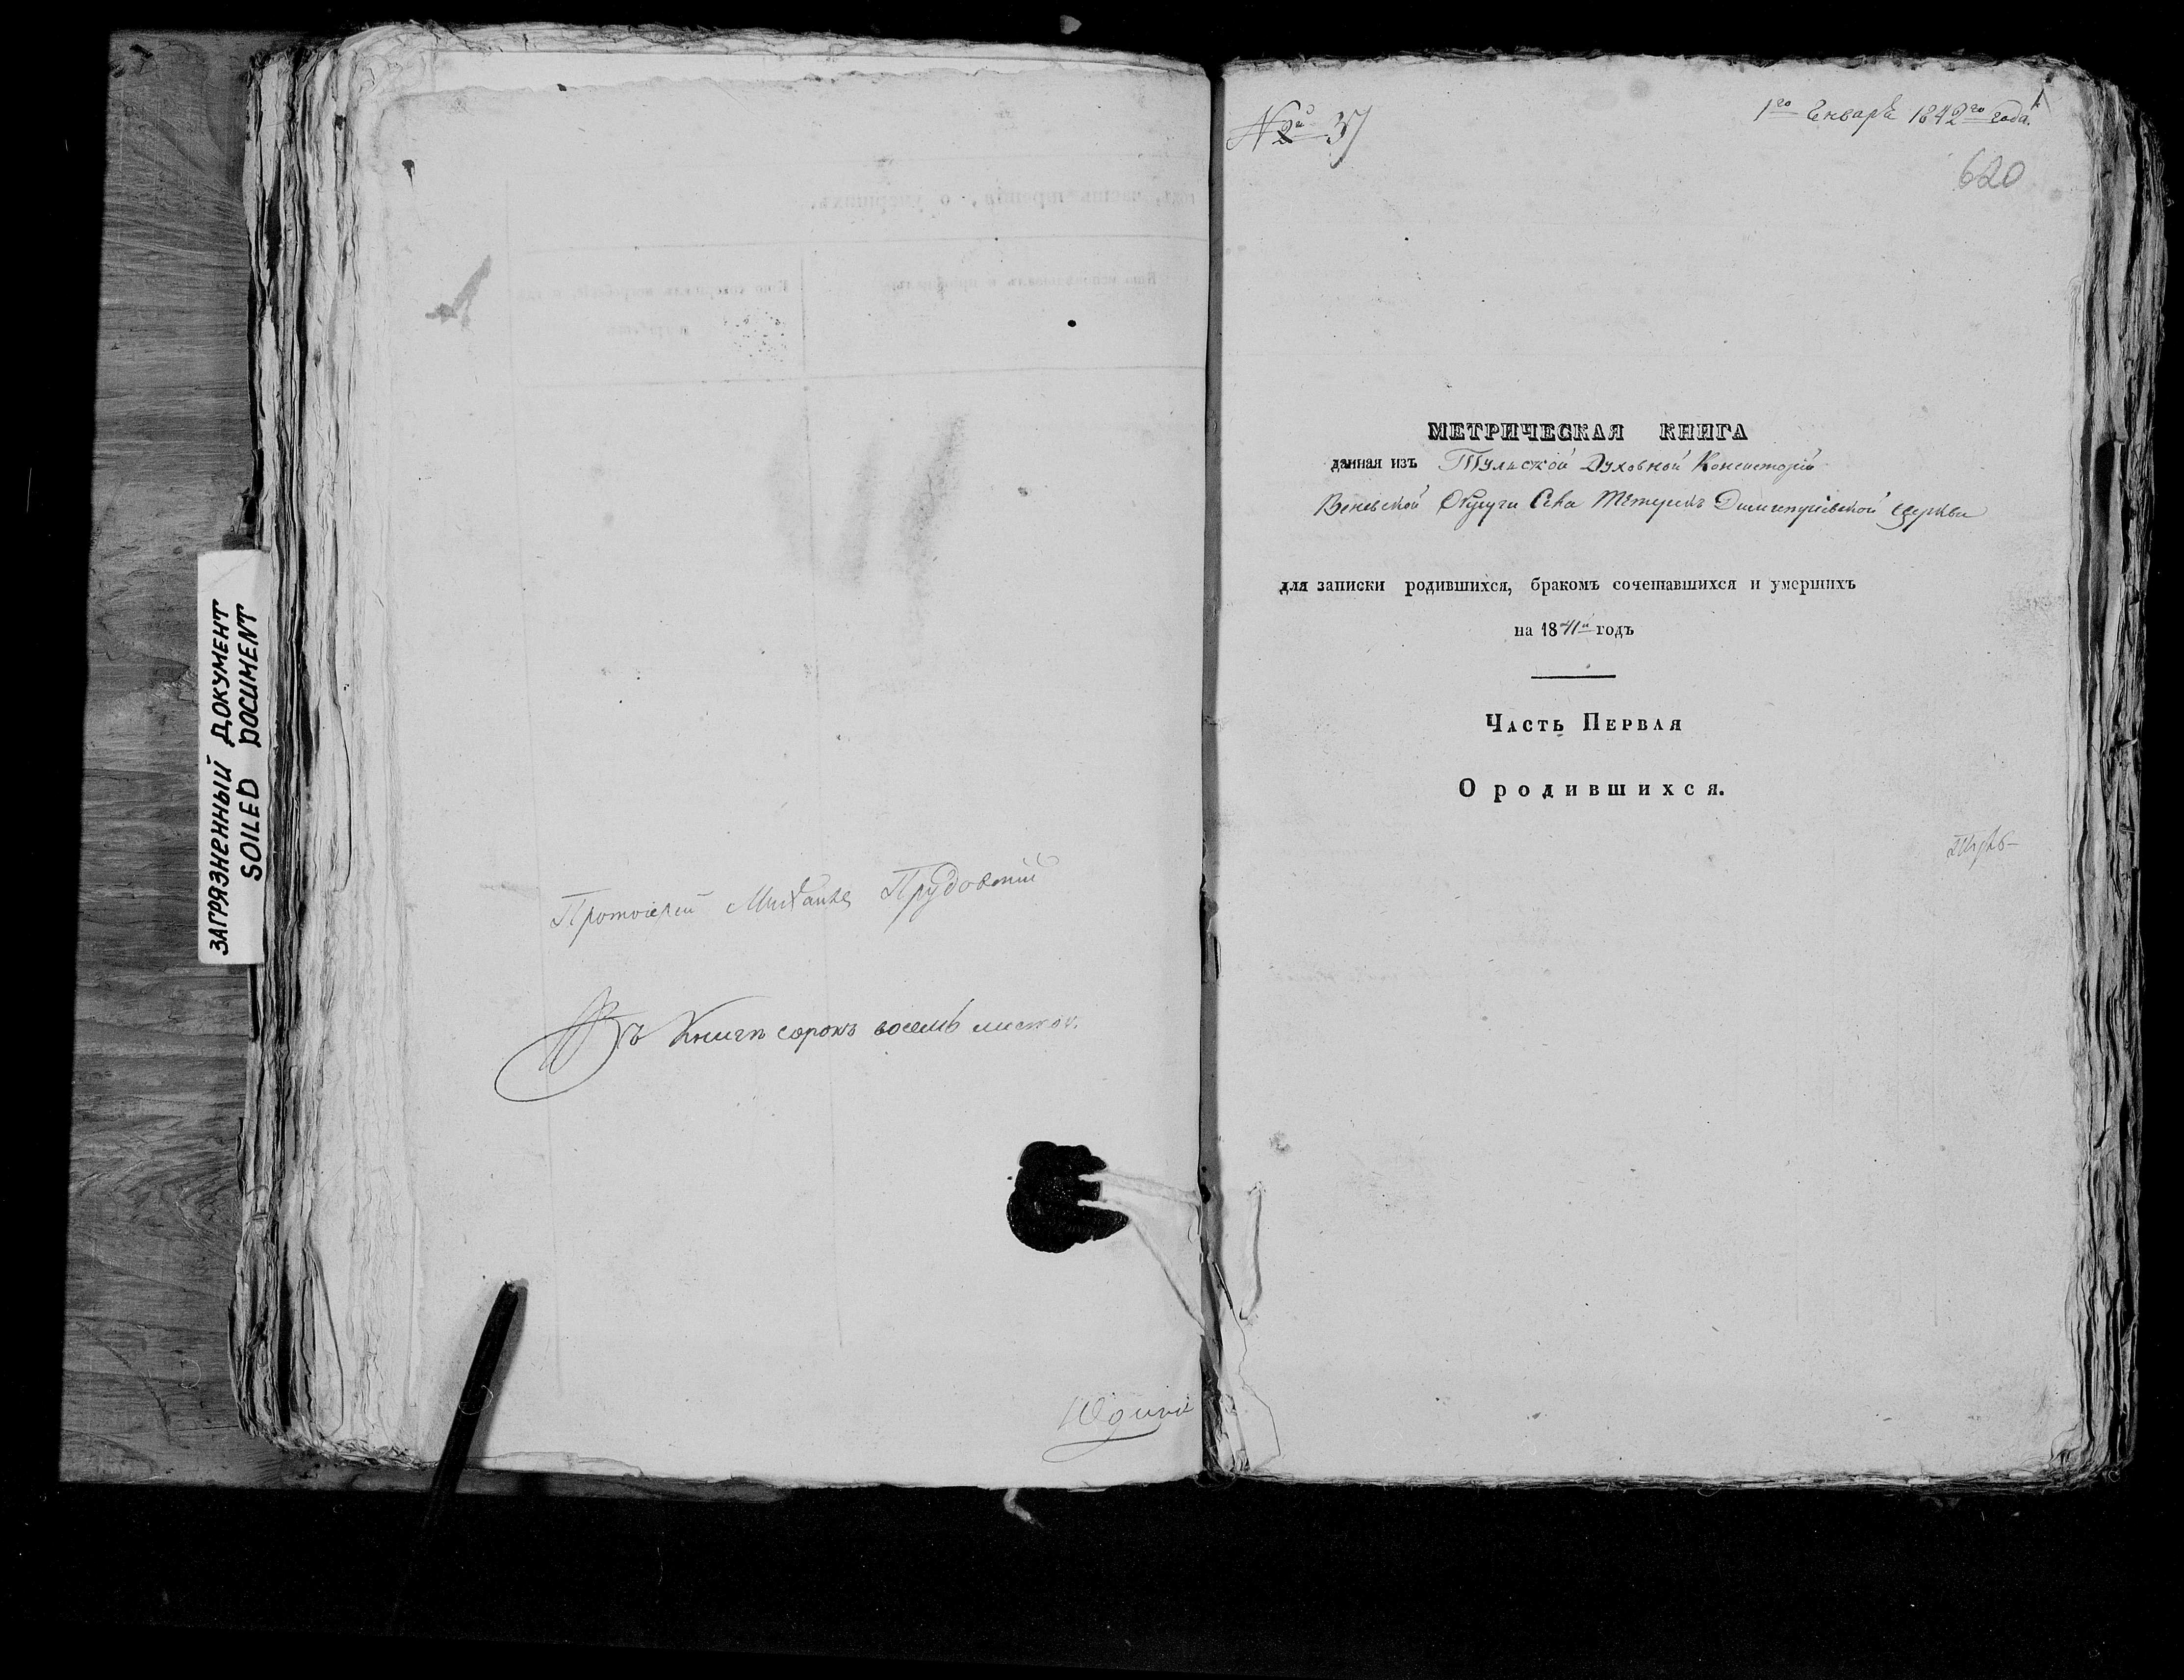 ЗАГРЯЗНЕННЫЙ ДОКУМЕНТ
SOILED DOCUMENT
Протоіерей Михаилъ Прудовскій
Въ Книгѣ сорокъ восемь листов.
1го Генварѣ 1842го года.
620
МЕТРИЧЕСКАЯ КНИГА
данная изъ Тульской Духовной Консисторіи
Веневской Округи Села Димитріевской церкви
для записки родившихся, бракомъ сочетавшихся и умершихъ
на 1841й годъ
Часть Первая
О родившихся.